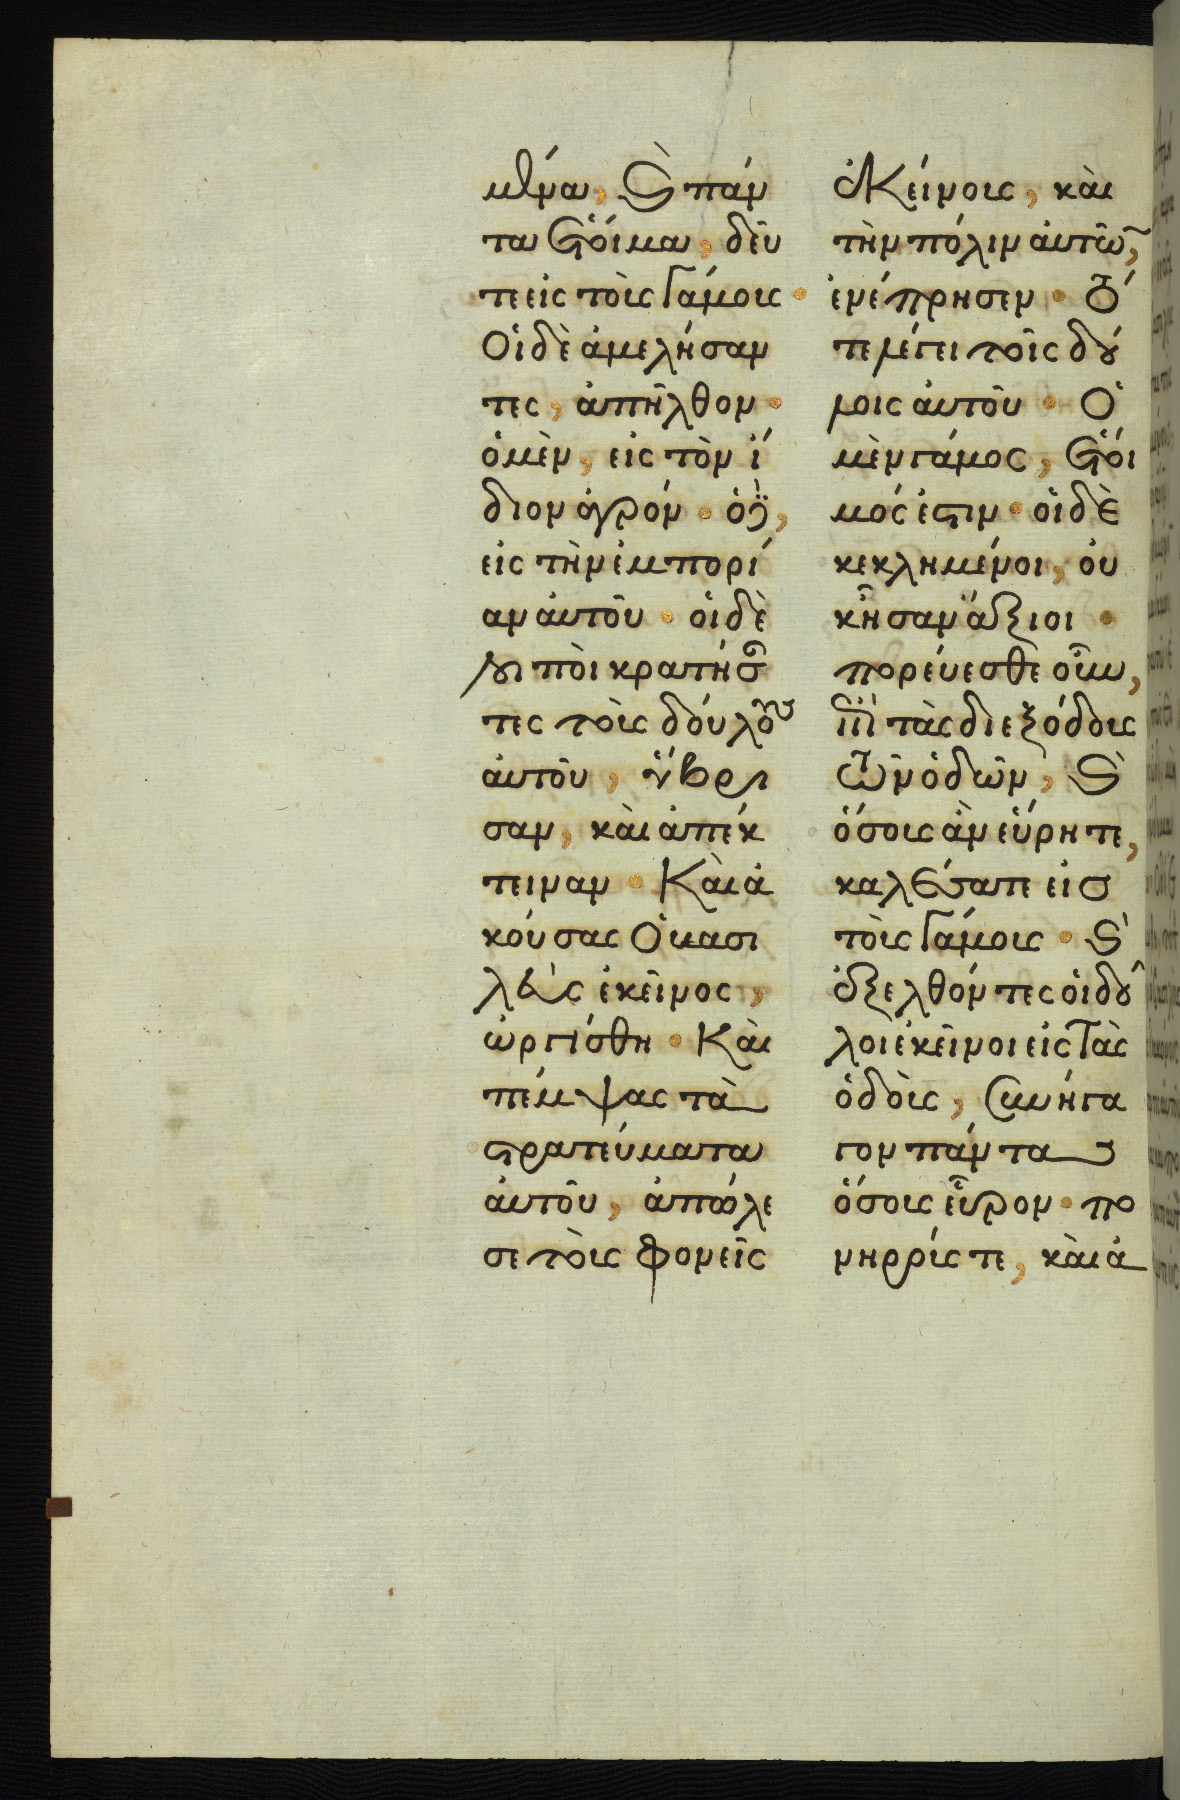 μένα, καὶ πάν
τα ἕτοιμα, δεῦ
τε εἰς τοὺς γάμους.
Οἱ δὲ ἀμελήσαν
τες, ἀπῆλθον.
ὁ μὲν, εἰς τὸν ἴ
διον ἀγρόν. ὁ δὲ,
εἰς τὴν ἐμπορί
αν αὐτοῦ. οἱ δὲ
λοιποὶ κρατήσαν
τες τοὺς δούλους
αὐτοῦ, ὕβρι
σαν, καὶ ἀπέκ
τειναν. Καὶ ἀ
κούσας Ὁ βασι
λεὺς ἐκεῖνος,
ὠργίσθη. Καὶ
πέμψας τὰ
στρατεύματα
αὐτοῦ, ἀπώλε
σε τοὺς φονεῖς
ἐκείνους, καὶ
τὴν πόλιν αὐτῶν,
ἐνέπρησεν. Τό
τε λέγει τοῖς δού
λοις αὐτοῦ. Ὁ
μὲν γάμος, ἕτοι
μός ἐστιν. οἱ δὲ
κεκλημένοι, οὐ
κ ἦσαν ἄξιοι.
πορεύεσθε οὖν,
ἐπὶ τὰς διεξόδους
τῶν ὁδῶν, καὶ
ὅσους ἂν εὕρητε,
καλέσατε εἰς
τοὺς γάμους. καὶ
ἐξελθόντες οἱ δοῦ
λοι ἐκεῖνοι εἰς τὰς
ὁδοὺς, συνήγα
γον πάντας
ὅσους εὗρον. πο
νηρρούς τε, καὶ ἀ